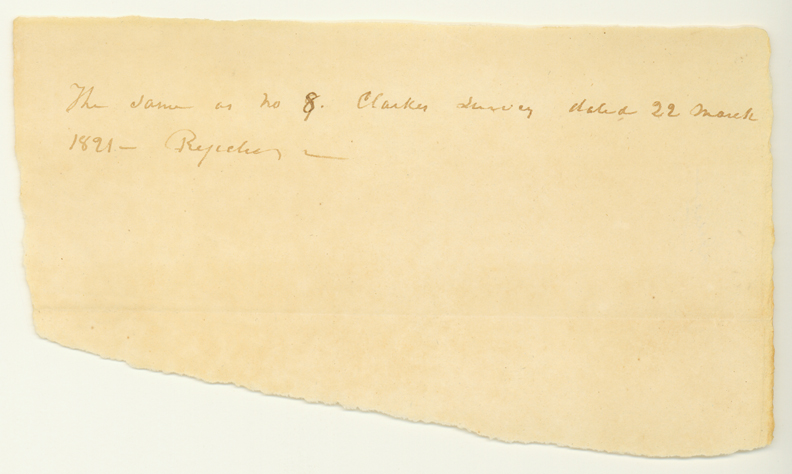 The same as No 8. Clarkes Survey dated 22 March
1821 — Rejected —